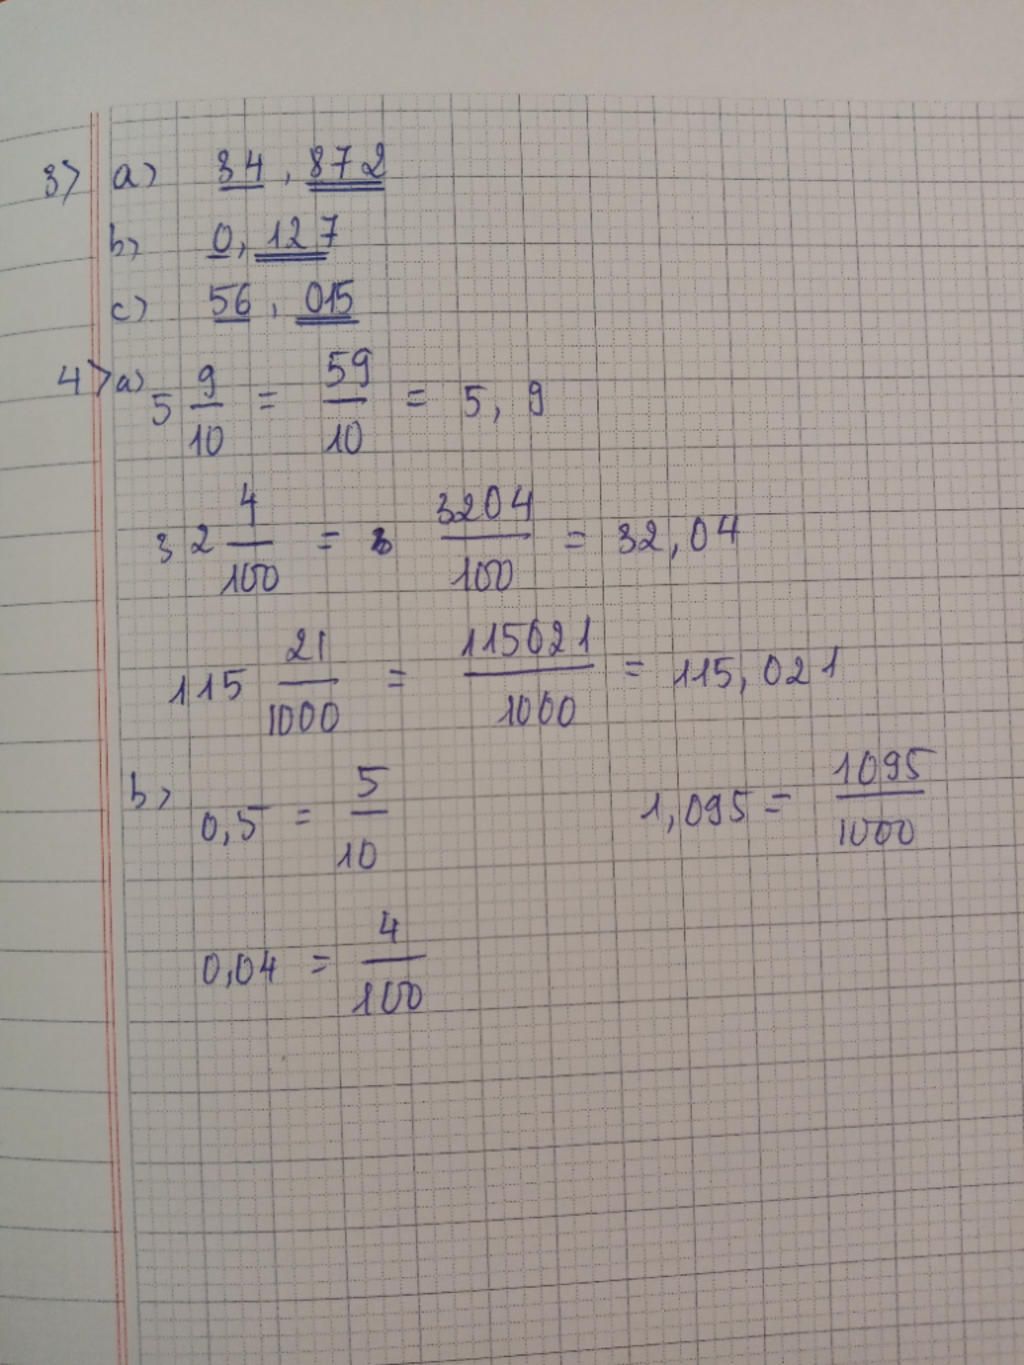 3> a) 34,872
b) 0,127
c) 56,015
4> a) 5 9/10 = 59/10 = 5,9
32 4/100 = 3204/100 = 32,04
115 21/1000 = 115021/1000 = 115,021
b) 0,5 = 5/10 1,095 = 1095/1000
0,04 = 4/100